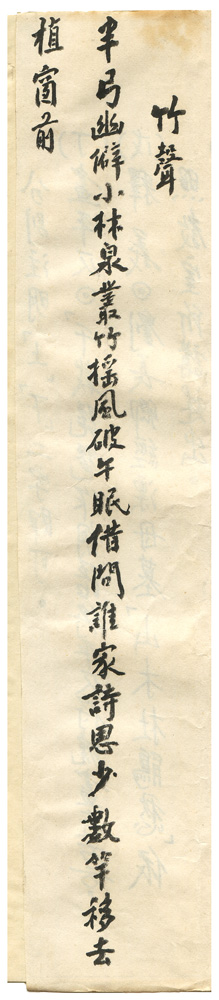 竹聲
半弓幽僻小林泉叢竹搖風破午眠借問誰家詩思少數竿移去
植窗前